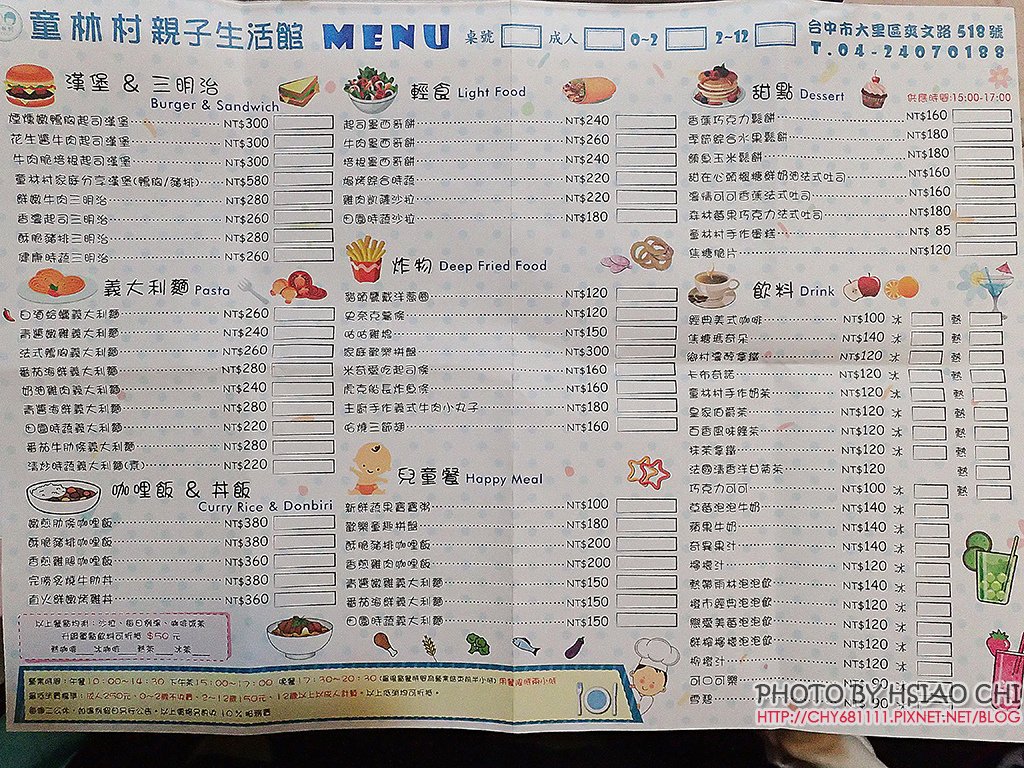 童林村親子生活館 MENU 桌號 成人 0~2 2~12
台中市大里區爽文路518號
T.04-24070188
漢堡 & 三明治
Burger & Sandwich
煙燻嫩鴨胸起司漢堡 NT$300
花生醬牛肉起司漢堡 NT$300
牛肉脆培根起司漢堡 NT$300
童林村家庭分享漢堡(鴨胸/豬排) NT$580
鮮嫩牛肉三明治 NT$280
香濃起司三明治 NT$260
酥脆豬排三明治 NT$280
健康時蔬三明治 NT$260
義大利麵 Pasta
白酒蛤蠣義大利麵 NT$260
青醬嫩雞義大利麵 NT$240
法式鴨胸義大利麵 NT$260
番茄海鮮義大利麵 NT$280
奶油雞肉義大利麵 NT$240
青醬海鮮義大利麵 NT$280
田園時蔬義大利麵 NT$220
番茄牛肋條義大利麵 NT$280
清炒時蔬義大利麵(素) NT$220
咖哩飯 & 丼飯
Curry Rice & Donbiri
嫩煎肋條咖哩飯 NT$380
酥脆豬排咖哩飯 NT$380
香煎雞腿咖哩飯 NT$360
完勝炙燒牛肋丼 NT$380
直火鮮嫩烤雞丼 NT$360
以上餐點均附：沙拉、每日例湯、咖啡或茶
升級單點飲料可折抵 $50 元
熱咖啡 冰咖啡 熱茶 冰茶
輕食 Light Food
起司墨西哥餅 NT$240
牛肉墨西哥餅 NT$260
培根墨西哥餅 NT$240
焗烤綜合時蔬 NT$220
雞肉凱薩沙拉 NT$220
田園時蔬沙拉 NT$180
炸物 Deep Fried Food
貓頭鷹戴洋蔥圈 NT$120
史奈克薯條 NT$120
咕咕雞塊 NT$150
家庭歡樂拼盤 NT$300
米奇愛吃起司條 NT$160
虎克船長炸魚條 NT$160
主廚手作義式牛肉小丸子 NT$180
哈燒三節翅 NT$160
兒童餐 Happy Meal
新鮮蔬果寶寶粥 NT$100
歡樂童趣拼盤 NT$180
酥脆豬排咖哩飯 NT$200
香煎雞肉咖哩飯 NT$200
青醬嫩雞義大利麵 NT$150
番茄海鮮義大利麵 NT$150
田園時蔬義大利麵 NT$150
甜點 Dessert 供應時間:15:00-17:00
香蕉巧克力鬆餅 NT$160
季節綜合水果鬆餅 NT$180
鮪魚玉米鬆餅 NT$180
甜在心頭楓糖鮮奶油法式吐司 NT$160
濃情可可香蕉法式吐司 NT$160
森林莓果巧克力法式吐司 NT$180
童林村手作蛋糕 NT$ 85
焦糖脆片 NT$120
飲料 Drink
經典美式咖啡 NT$100 冰 熱
焦糖瑪奇朵 NT$140 冰 熱
鄉村濃醇拿鐵 NT$120 冰 熱
卡布奇諾 NT$120 冰 熱
童林村手作奶茶 NT$120 冰 熱
皇家伯爵茶 NT$120 冰 熱
百香風味綠茶 NT$120 冰 熱
抹茶拿鐵 NT$120 冰 熱
法國清香洋甘菊茶 NT$120 熱
巧克力可可 NT$100 冰 熱
草莓泡泡牛奶 NT$140 冰
蘋果牛奶 NT$140 冰
奇異果汁 NT$140 冰
檸檬汁 NT$120 冰
熱帶雨林泡泡飲 NT$140 冰
橙市經典泡泡飲 NT$120 冰
戀愛草莓泡泡飲 NT$120 冰
鮮檸檬檬泡泡飲 NT$120 冰
柳橙汁 NT$120 冰
可口可樂 NT$ 90 冰
雪碧 NT$ 90 冰
營業時間：午餐10:00~14:30 下午茶15:00~17:00 晚餐17:30~20:30 用餐限時兩小時
最低消費標準：成人250元，0~2歲不收費，2~12歲150元，12歲以上以成人計算。以上消費均可折抵。
PHOTO BY HSIAO CHI
HTTP://CHY681111.PIXNET.NET/BLOG